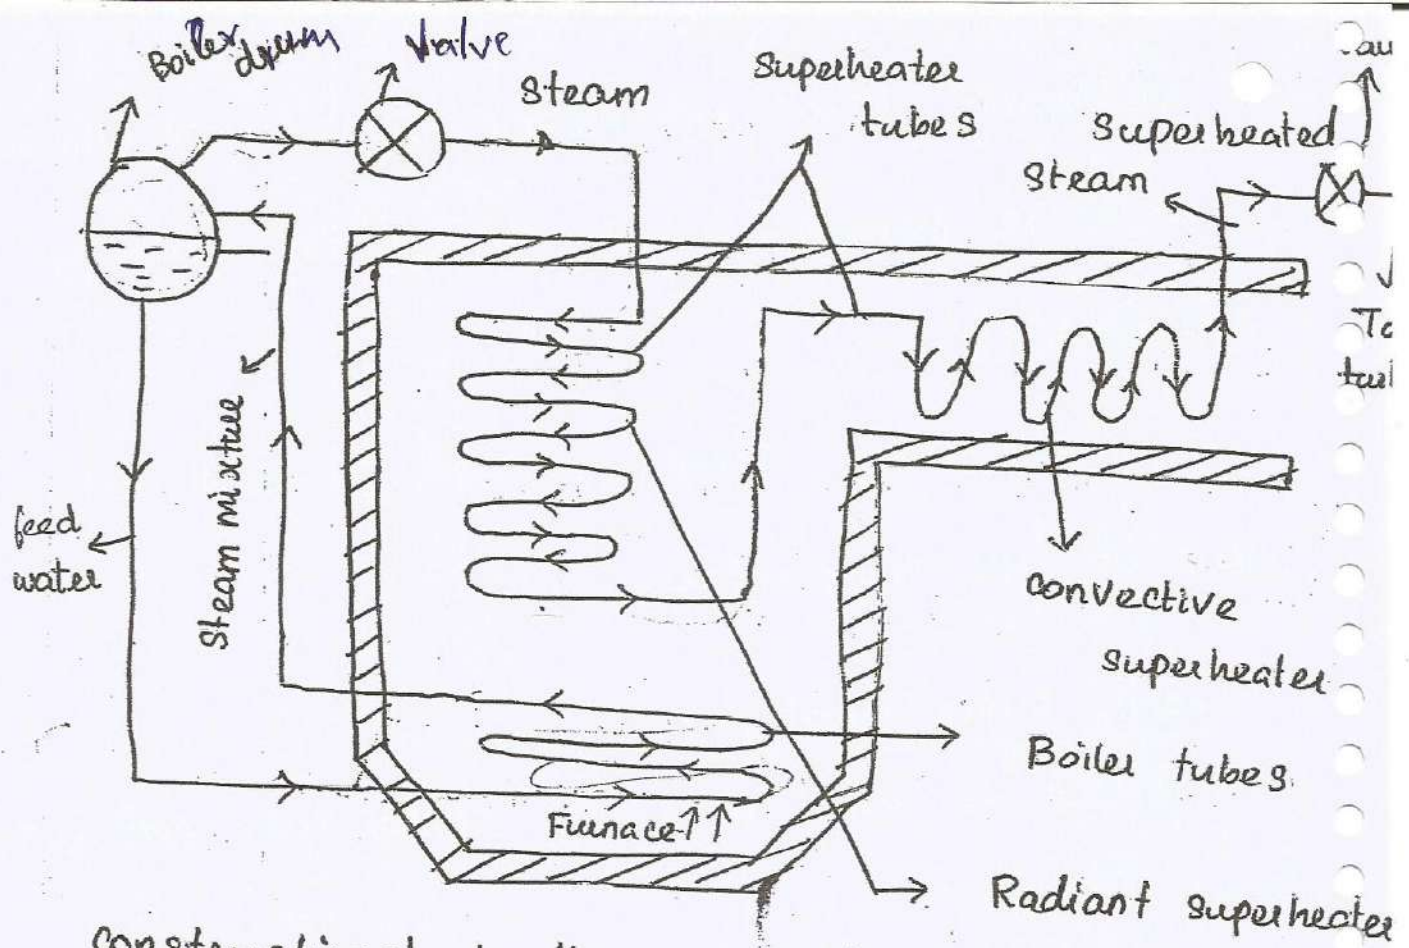 Boiler drum
Valve
Steam
Superheater
tubes
Superheated
Steam
feed
water
Steam mixture
convective
superheater
Boiler tubes
Furnace
Radiant superheater